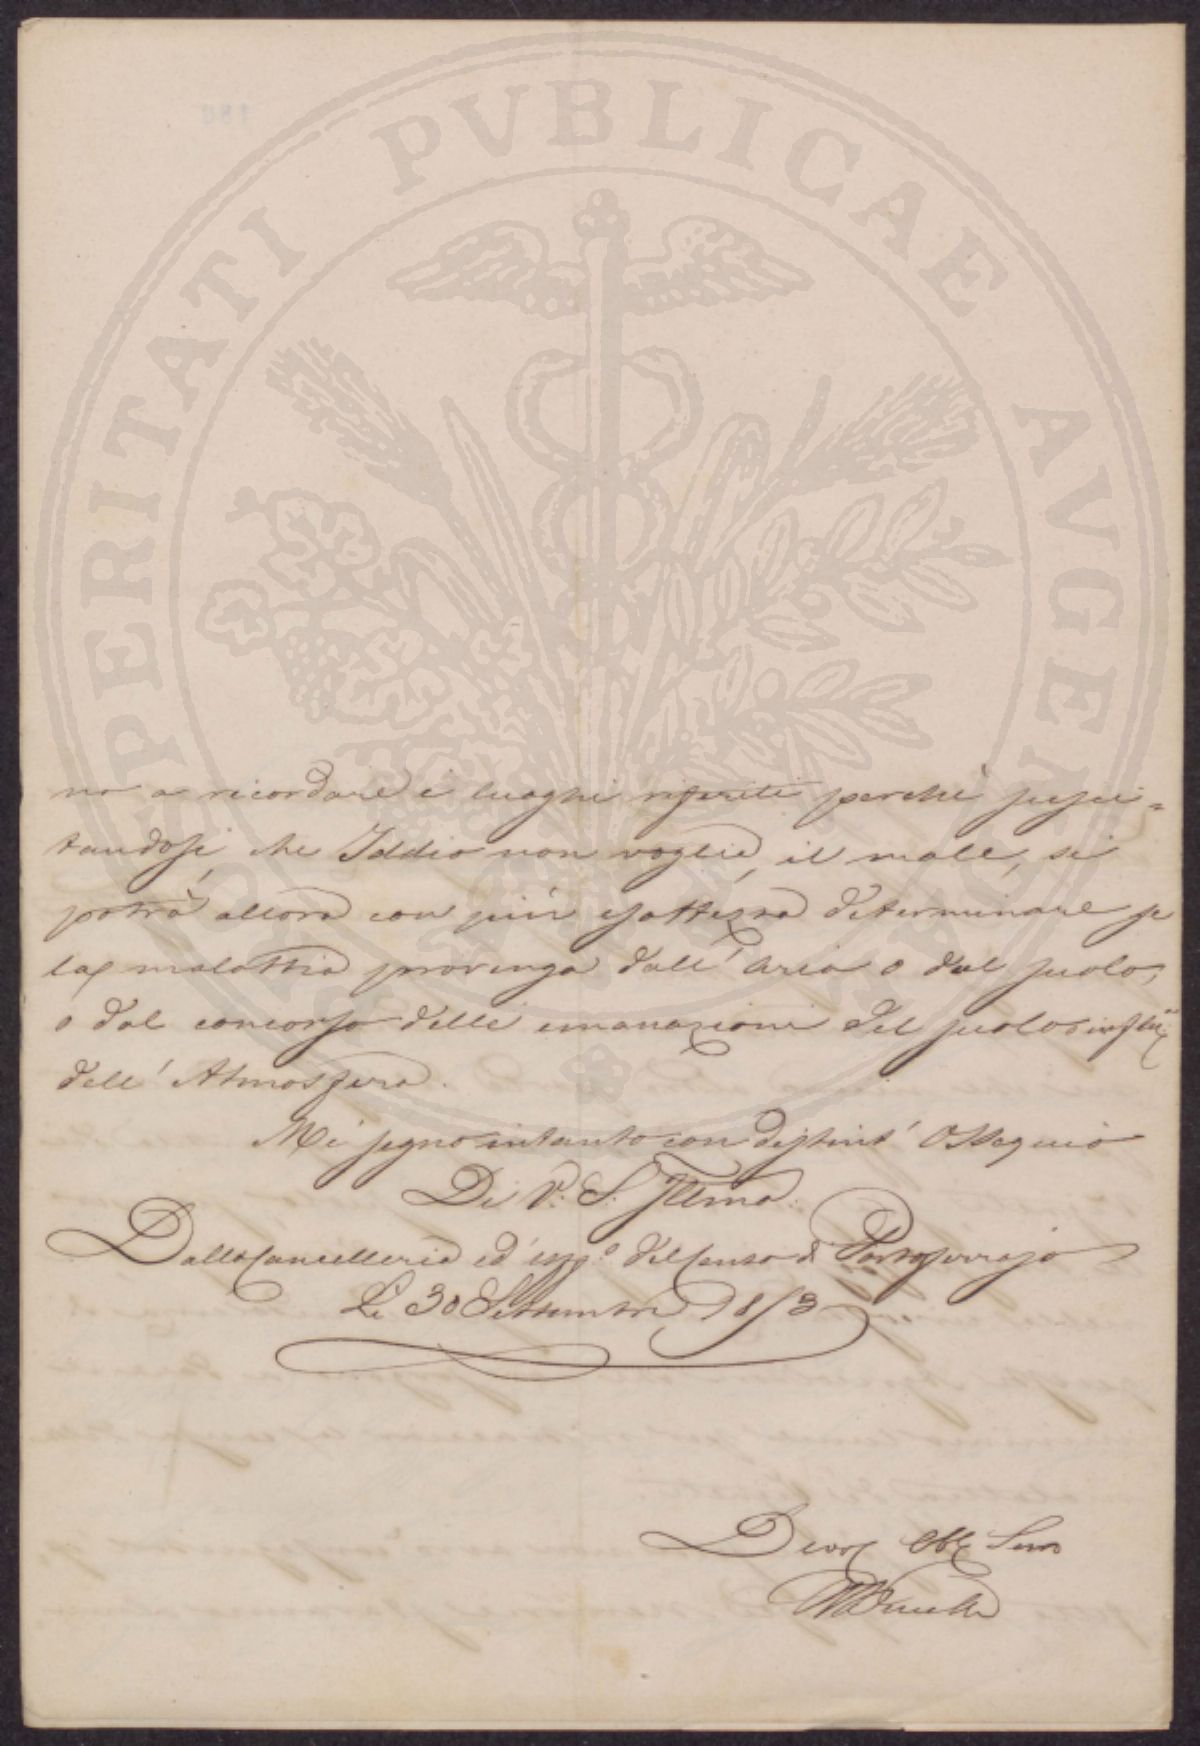 PROSPERITATI PVBLICAE AVGENDAE
no a ricordare i luoghi infertti perchè susci=
tandosi, che Iddio non voglia, il male, si
potrà allora con più esattezza determinare se
la malattia provenga dall'aria o dal suolo,
o dal concorso delle emanazioni del suolo e influ.
dell'Atmosfera.
Mi segno intanto con distint' Ossequio
Di V: S: Illma.
Dalla Cancelleria ed del Censo di Portoferrajo
Li 30 Settembre 1853
Devo Obb Servo